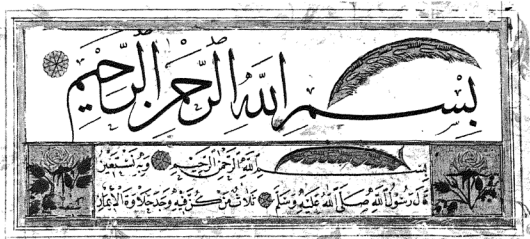 بسم الله الرحمن الرحيم
بسم الله الرحمن الرحيم وبه نستعين
قال رسول الله صلى الله عليه وسلم ثلاث من كن فيه وجد حلاوة الإيمان